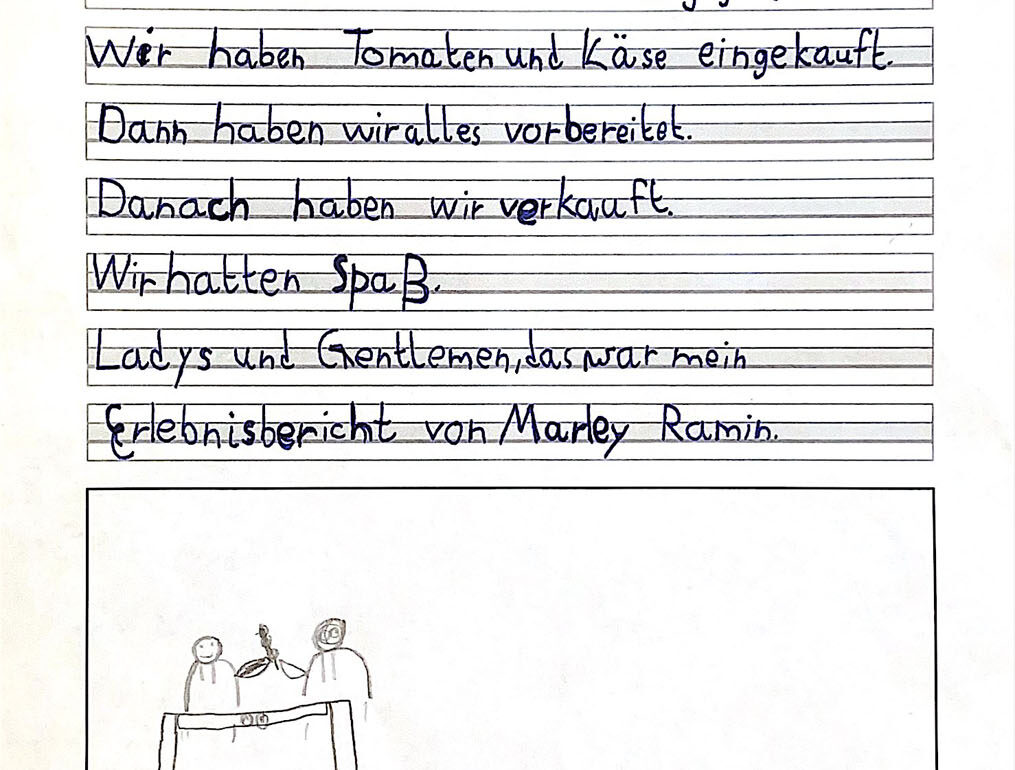 Wir haben Tomaten und Käse eingekauft.
Dann haben wir alles vorbereitet.
Danach haben wir verkauft.
Wir hatten Spaß.
Ladys und Gentlemen, das war mein
Erlebnisbericht von Marley Ramin.